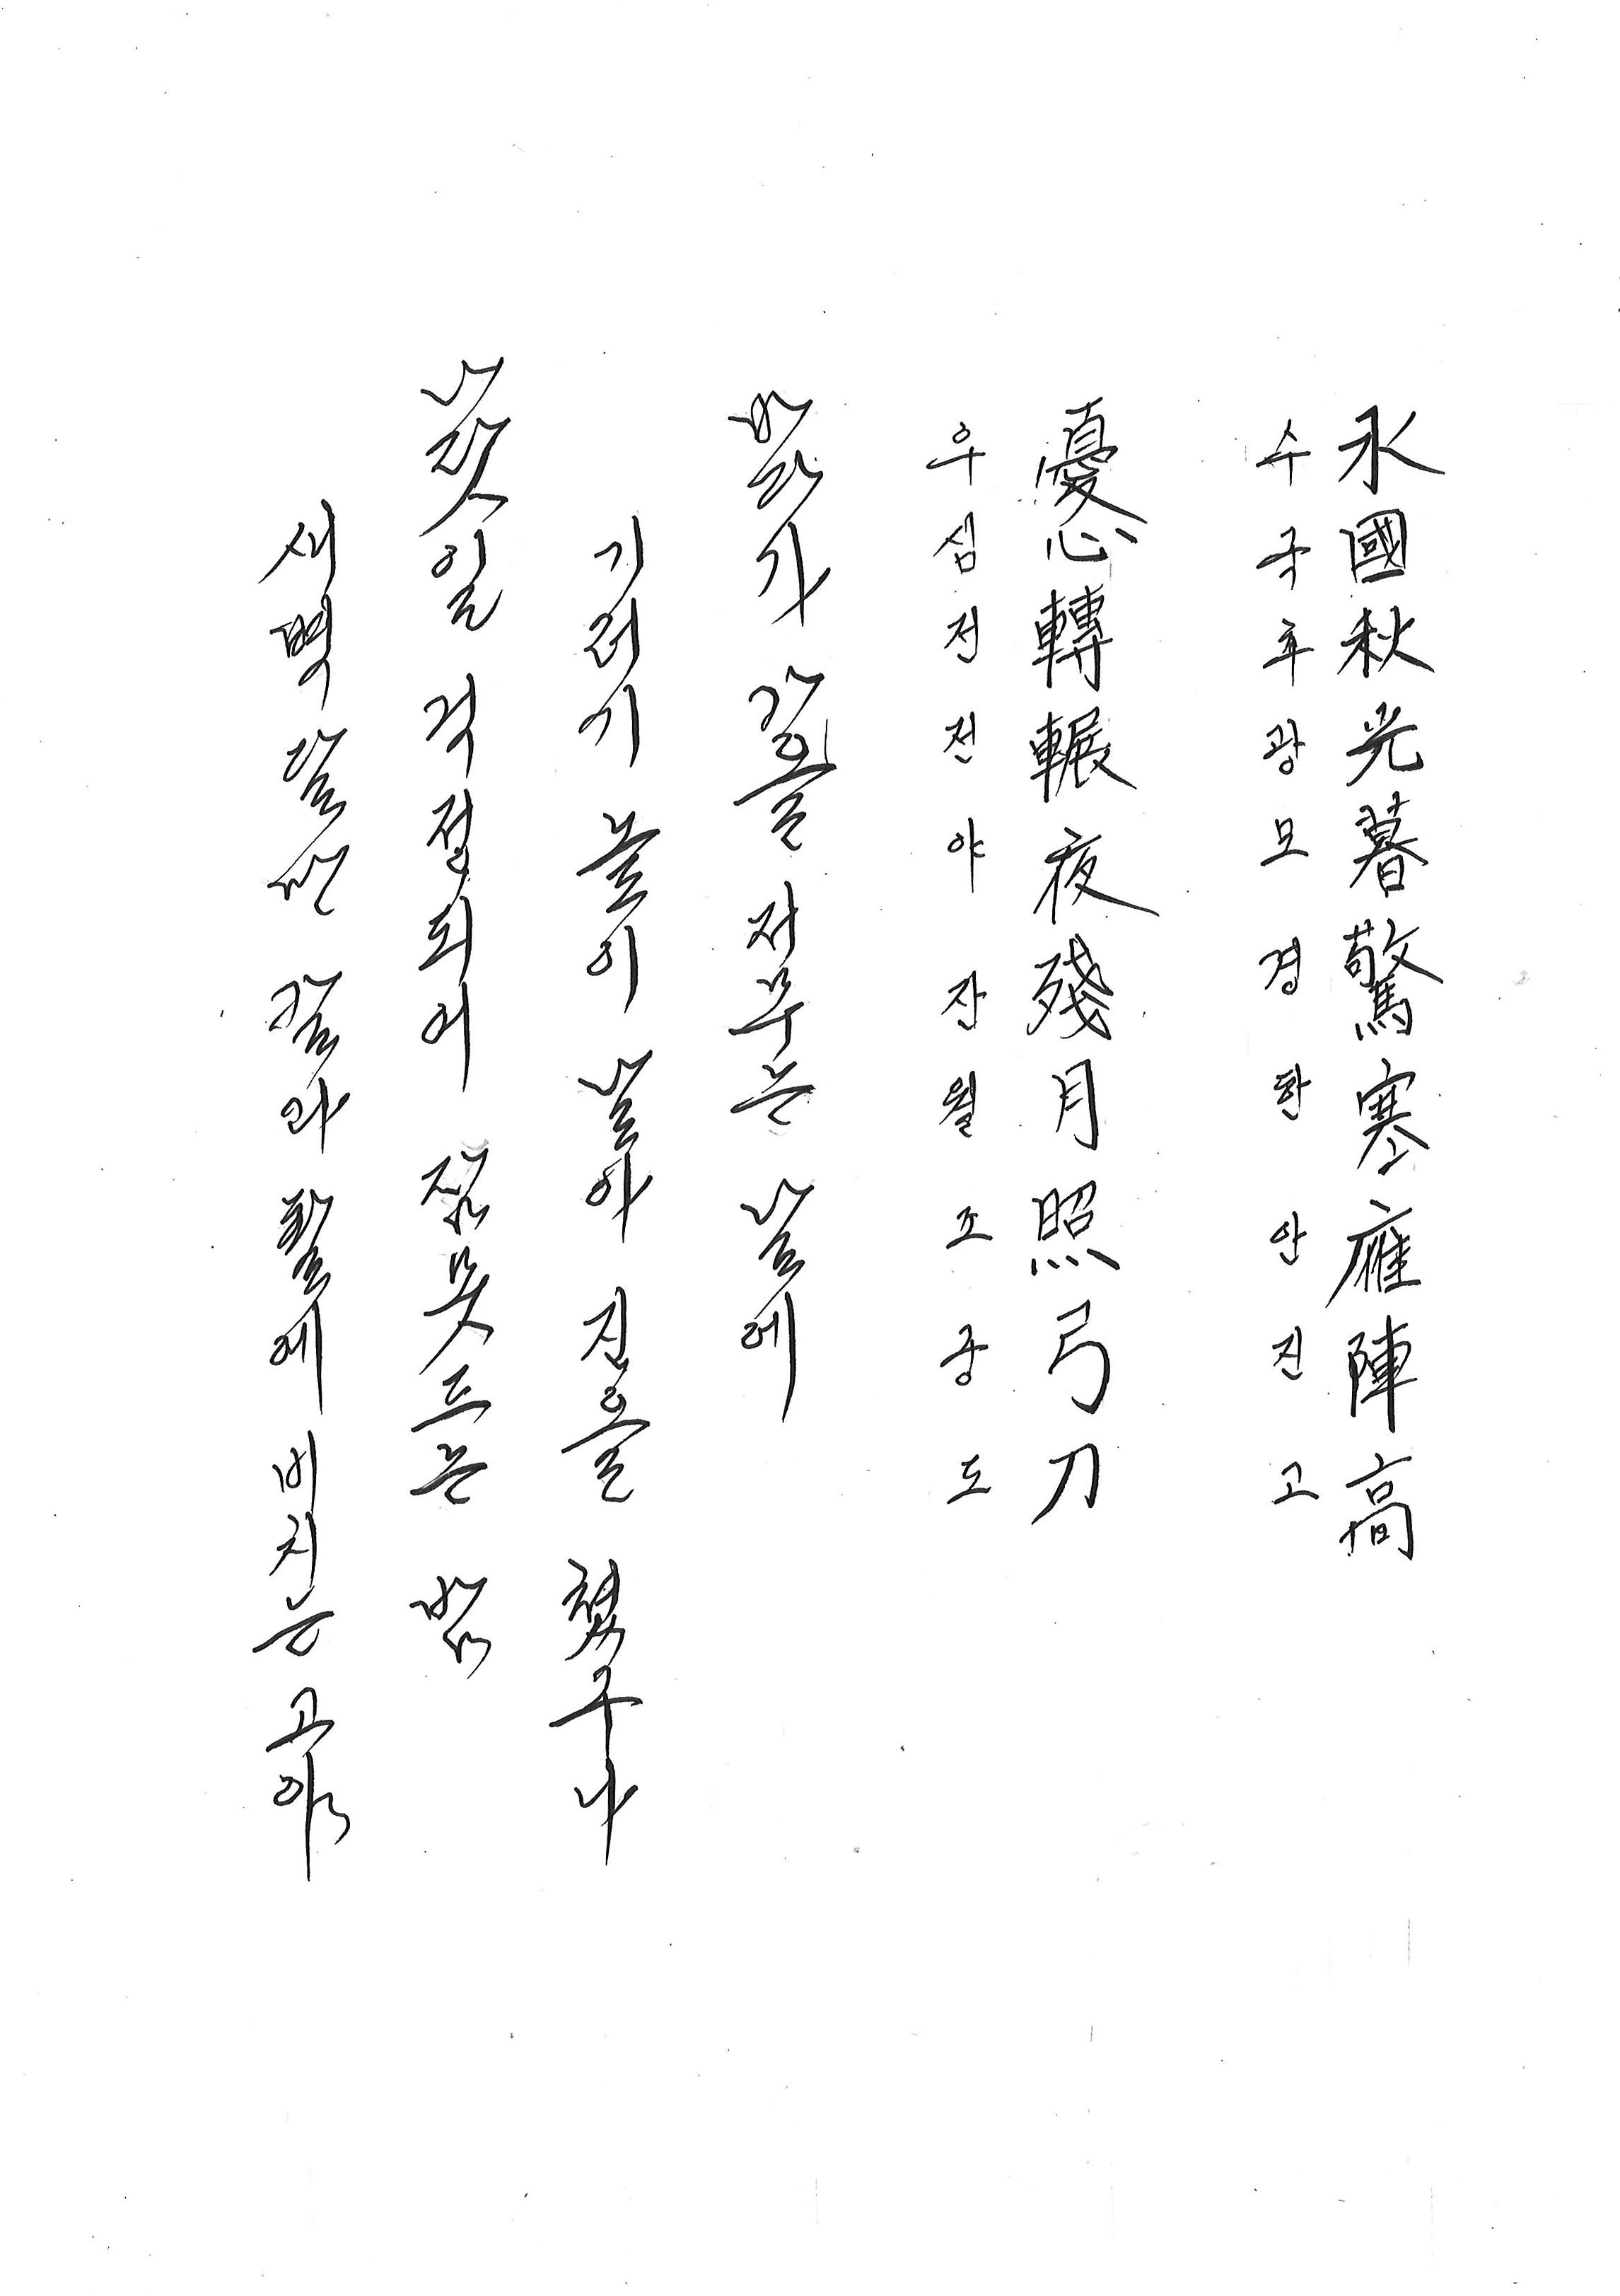 水國秋光暮驚寒雁陣高
수국추광모경한안진고
憂心轉輾夜殘月照弓刀
우심전전야잔월조궁도
바닷가 가을 저무는 날에
기러기 높이 날아 진을 쳤구나
나랏일 걱정되어 잠 못 드는 밤
새벽 달만 칼과 활에 비치는 고야